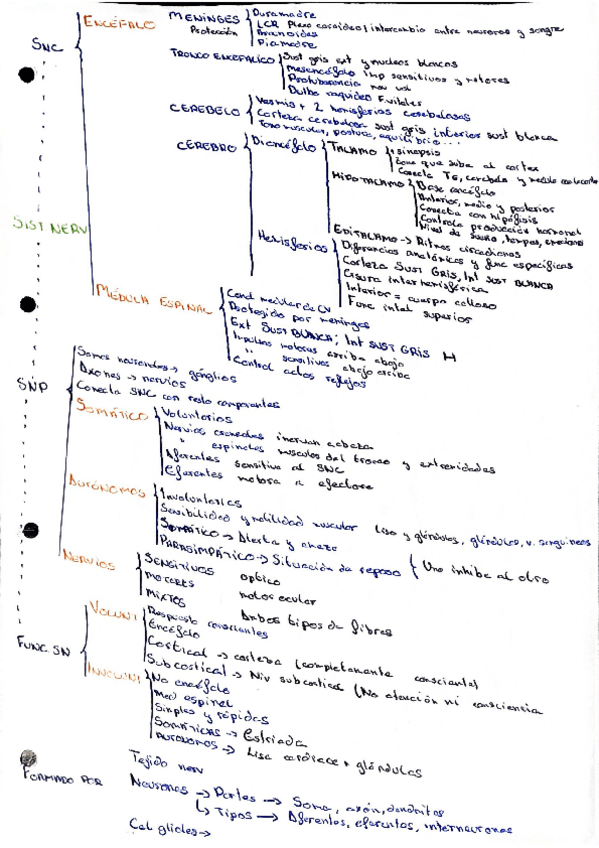 SIST NERV
SNC
ENCÉFALO
MENINGES
Protección
Duramadre
LCR Plexo coroideo | intercambio entre neuronas y sangre
Aracnoides
Piamadre
TRONCO ENCEFÁLICO
Sust gris ext y nucleos blancos
Mesencéfalo Imp sensitivos y motores
Protuberancia
Bulbo raquídeo F. vitales
CEREBELO
Vermis + 2 hemisferios cerebelosos
Corteza cerebelosa sust gris inferior sust blanca
Tono muscular, postura, equilibrio...
CEREBRO
Diencéfalo
TALAMO
sinapsis
Zona que sube al cortex
Conecta TE, cerebelo y medula con la corteza
HIPOTALAMO
Base encéfalo
Anterior, medio y posterior
Conecta con hipófisis
Controla producción hormonal
Nivel de sueño, tempas, emociones
EPITALAMO → Ritmos circadianos
Hemisferios
Diferencias anatómicas y func específicas
Corteza SUST GRIS, Int SUST BLANCA
Cisura interhemisférica
Interior = cuerpo calloso
Func intel superior
MÉDULA ESPINAL
Cond medular de CV
Protegido por meninges
Ext SUST BLANCA; Int SUST GRIS H
Impulsos motores arriba abajo
" sensitivos abajo arriba
Control actos reflejos
SNP
Somas neuronales → gánglios
Axones → nervios
Conecta SNC con resto componentes
SOMÁTICO
Voluntarios
Nervios craneales inervan cabeza
" espinales musculos del tronco y extremidades
Aferentes sensitiva al SNC
Eferentes motora a efectore
AUTÓNOMOS
Involuntarios
Sensibilidad y motilidad muscular liso y glándulos, glándulas, v. sanguineos
SOMÁTICO → Alerta y
PARASIMPÁTICO → Situación de reposo { Uno inhibe al otro
NERVIOS
SENSITIVOS optico
MOTORES motor ocular
MIXTOS Ambos tipos de fibras
FUNC. SN
VOLUNT
Respuesta conscientes
Encéfalo
Cortical → corteza (completamente consciante)
Subcortical → Niv subcortical (No atención ni consciencia
INVOLUNT
No encéfalo
Med espinal
Simples y rápidas
SOMÁTICAS → Estriada
AUTÓNOMOS → Lisa cardiaca + glándulas
FORMADO POR
Tejido nerv
Neuronas → Partes → Soma, axón, dendritas
↳ Tipos → Aferentes, eferentes, interneuronas
Cel gliales →